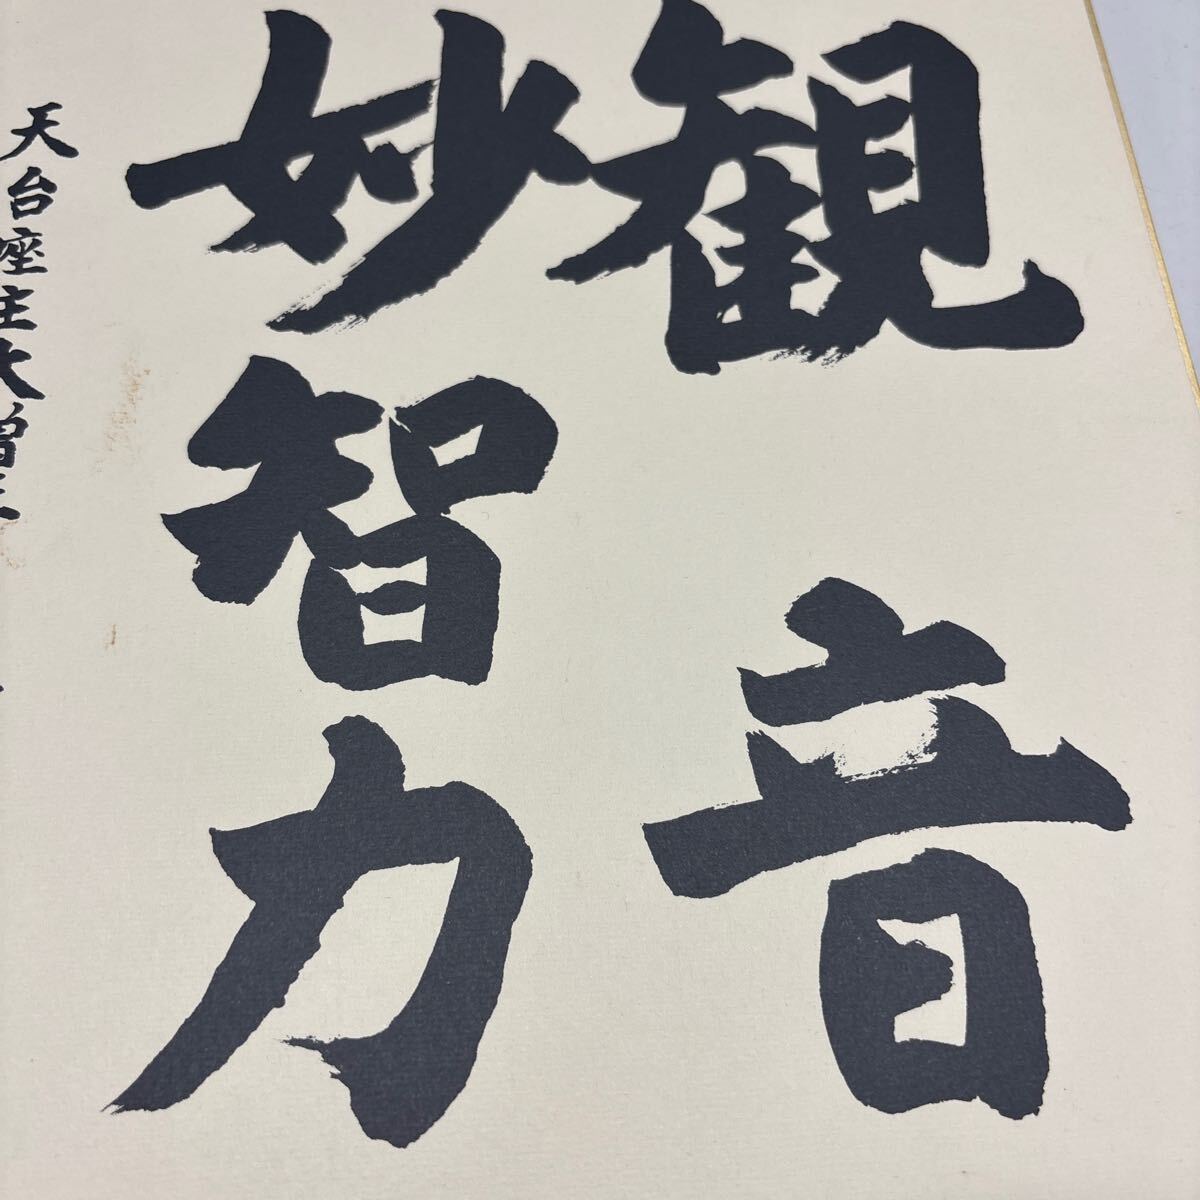 観音
妙智力
天台座主大僧正